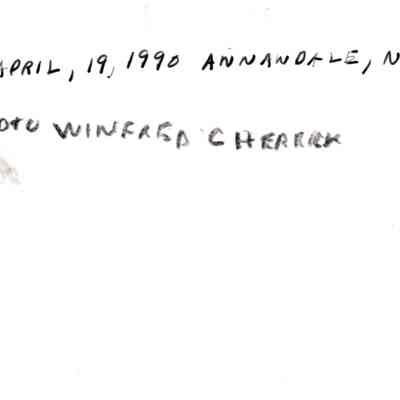 APRIL, 19, 1990 ANNANDALE, N
OTO WINFRED CHERRER